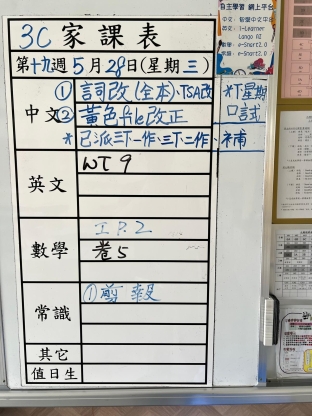 3C 家課表
第十九週5月28日(星期三)
中文
① 詞改(全本)、TSA改
② 黃色file改正
* 已派三下一作、三下二作、補
*下星期
口試
英文
WT 9
數學
I.P.2
卷5
常識
① 剪報
其它
值日生
自主學習 網上平台
中文:智愛中文平台
英文:i-Learner
Lango AI
數學:e-Smart2.0
常識:e-Smart2.0